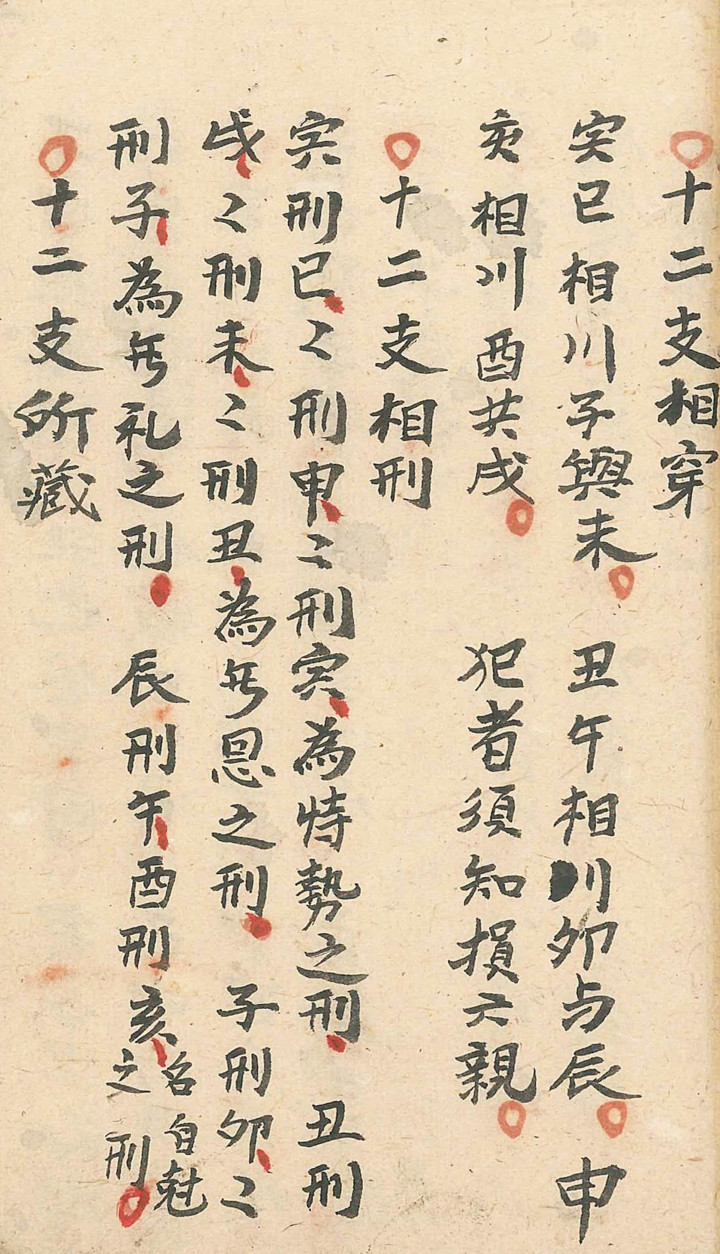 〇十二支相穿
寅巳相川子與未〇丑午相川卯与辰〇申
亥相川酉共戌〇犯者須知損六親〇
〇十二支相刑
寅刑巳〻刑申〻刑寅為恃勢之刑 丑刑
戌〻刑未〻刑丑為无恩之刑 子刑卯〻
刑子為无礼之刑 辰刑午酉刑亥名自尅之刑〇
〇十二支所藏